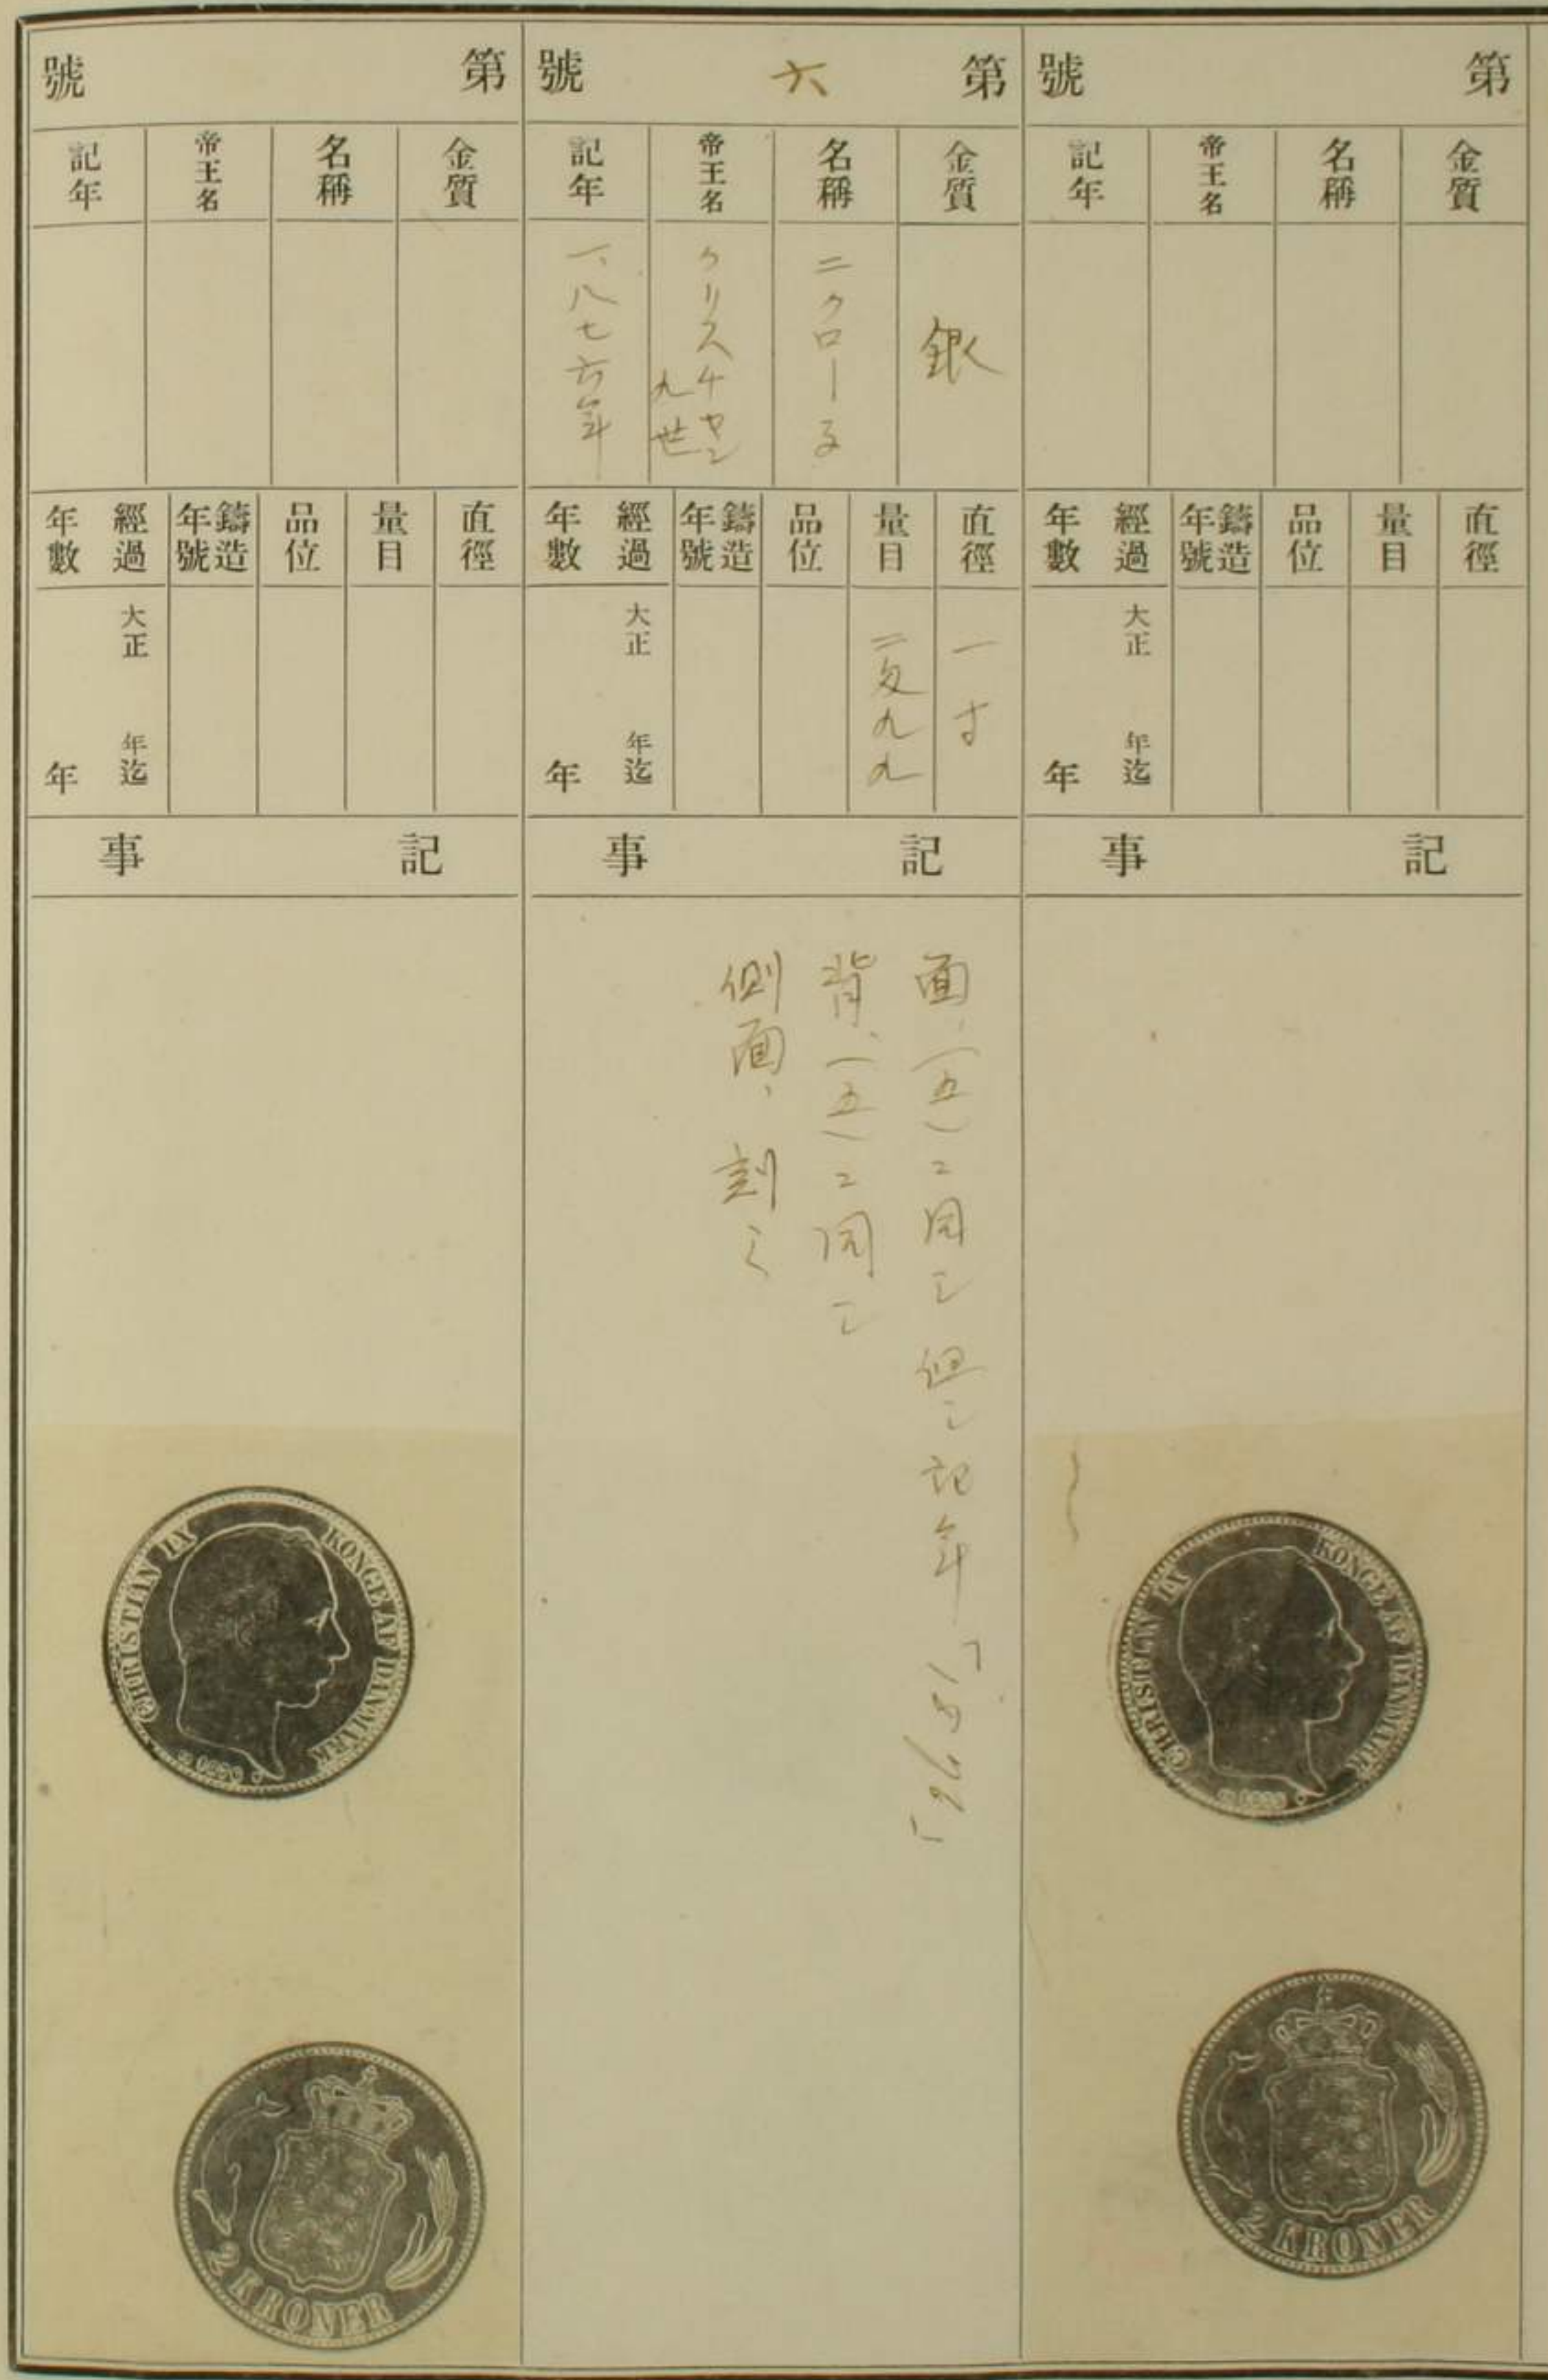 第 號
金質
名稱
帝王名
記年
直徑
量目
品位
鑄造年號
經過年數
大正 年迄
年
記 事
CHRISTIAN IX KONGE AF DANMARK
2 KRONER
第 六 號
金質
銀
名稱
二クローネ
帝王名
クリスチヤン
九世
記年
一、八七六年
直徑
一寸
量目
二匁九九
品位
鑄造年號
經過年數
大正 年迄
年
記 事
面、(五)ニ同シ 但シ記年「1876」
背、(五)ニ同シ
側面、刻ミ
第 號
金質
名稱
帝王名
記年
直徑
量目
品位
鑄造年號
經過年數
大正 年迄
年
記 事
CHRISTIAN IX KONGE AF DANMARK
2 KRONER